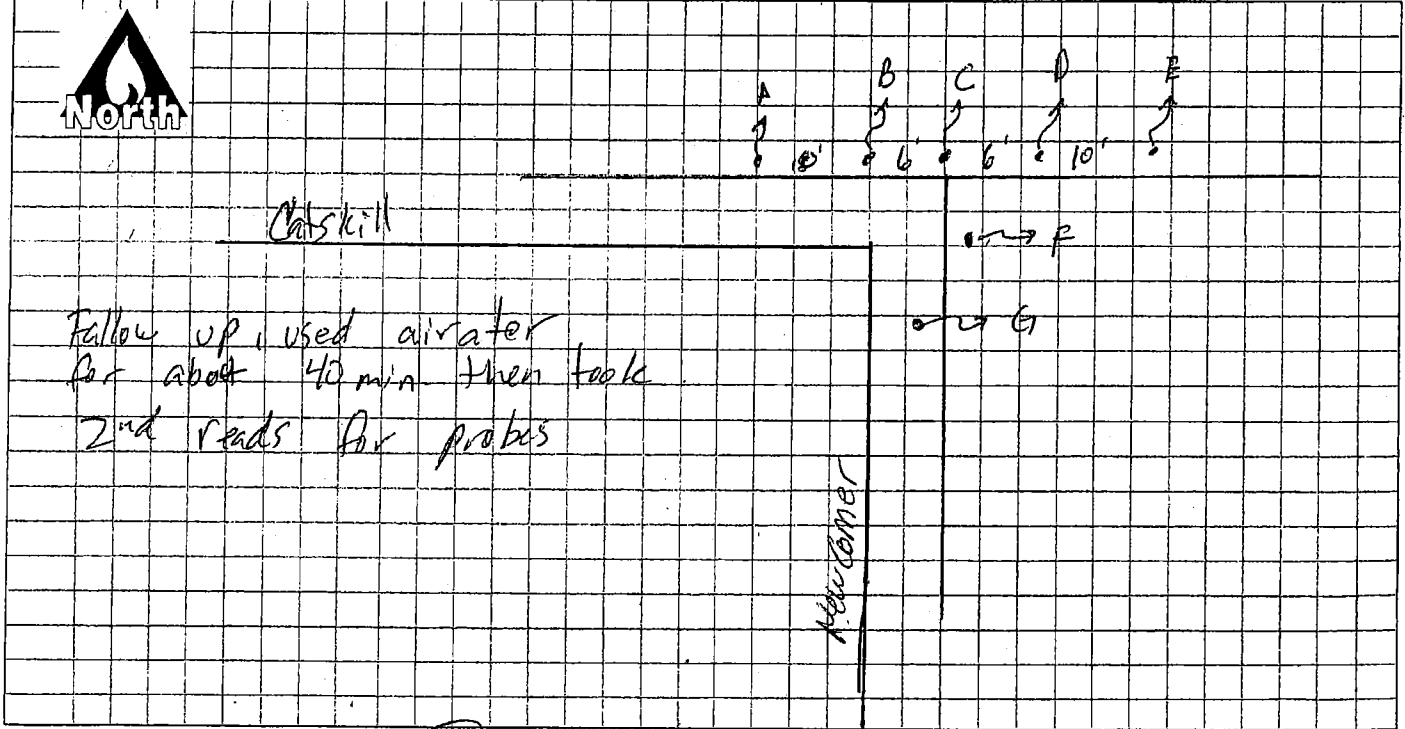 North
A B C D E
10' 6' 6' 10'
Catskill
F
G
Fallow up, used airater
for abot 40 min then took
2nd reads for probes
Newcomer